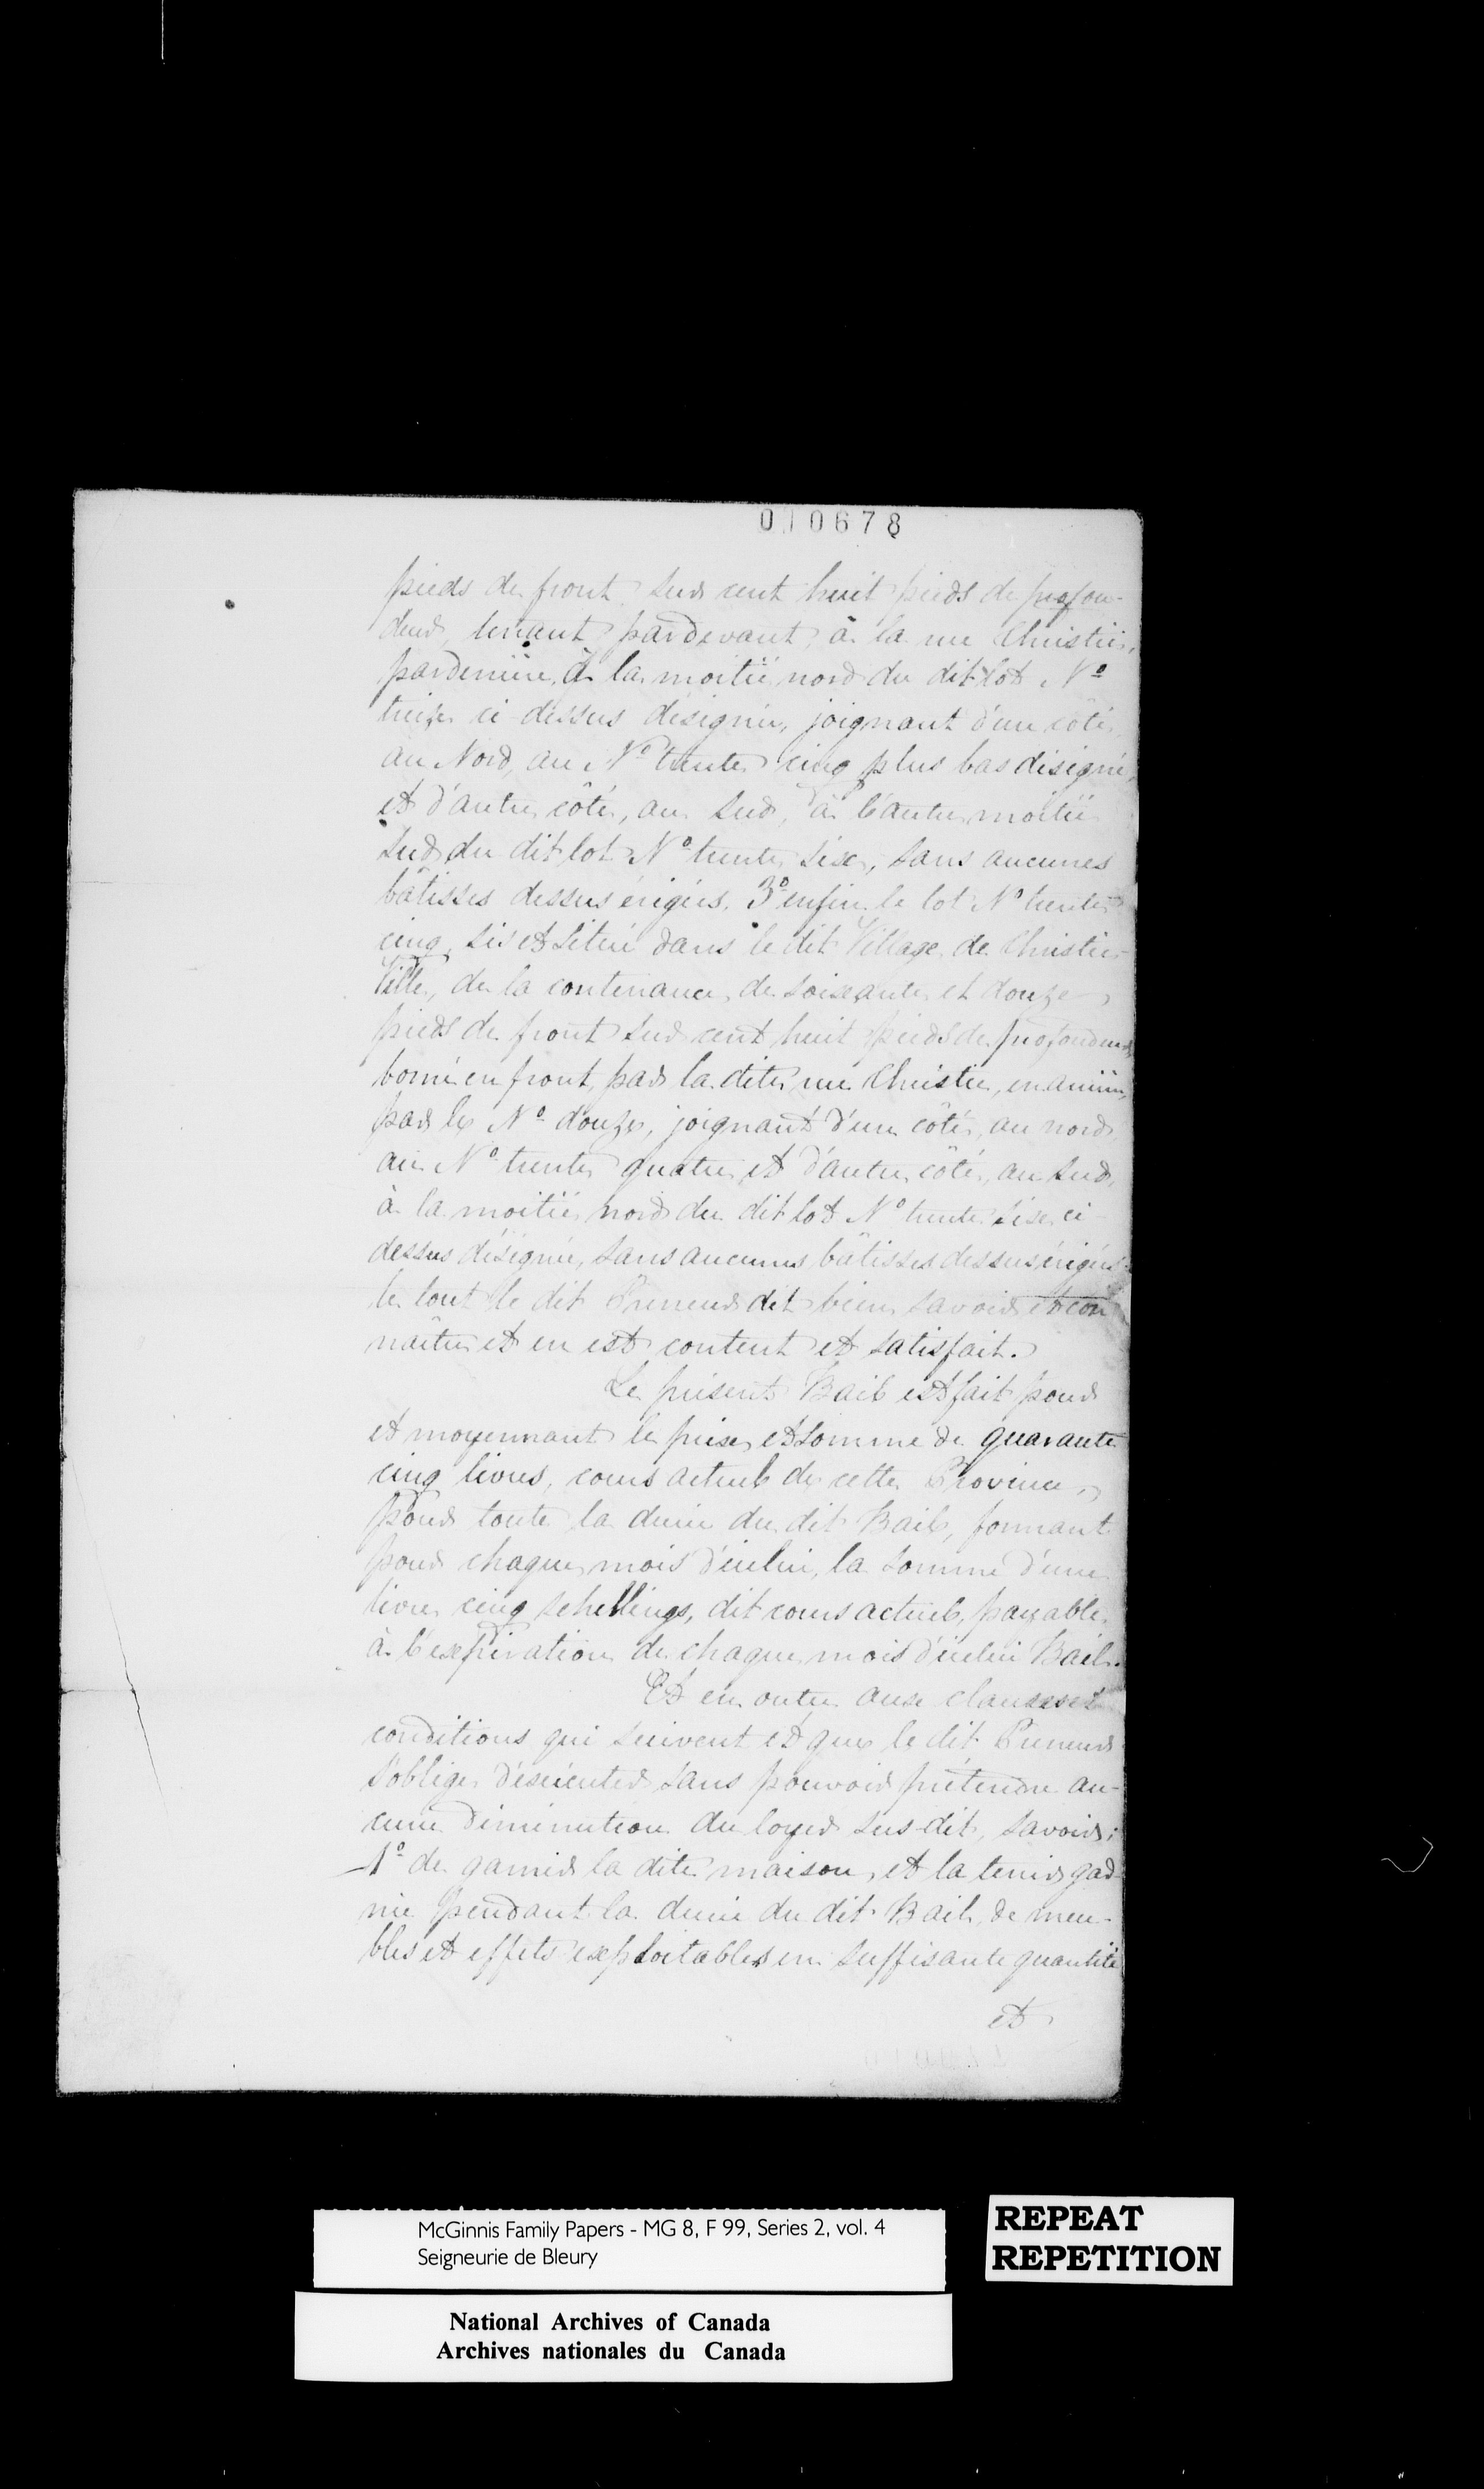 010678
pieds de front sur cent huit pieds de profon-
deur, tenant pardevant à la rue Christie,
parderrière, à la moitié nord du dit lot No
treize ci-dessus désignée, joignant d'un côté,
au Nord, au No trente cinq plus bas désigné,
et d'autre côté, au Sud, à l'autre moitié
Sud du dit lot No trente six, sans aucunes
bâtisses dessus érigées. 3o enfin le lot No trente
cinq, sis et situé dans le dit Village de Christie-
Ville, de la contenance de soixante et douze
pieds de front sur cent huit pieds de profondeur
borné en front par la dite rue Christie, en arrière,
par le No douze, joignant d'un côté, au nord,
au No trente quatre et d'autre côté, au Sud,
à la moitié nord du dit lot No trente six ci-
dessus désignée, sans aucunes bâtisses dessus érigées
le tout le dit Preneur dit bien savoir et con
naître et en est content et satisfait.
Le présent Bail est fait pour
et moyennant le prix et somme de quarante
cinq livres, cours actuel de cette Province,
pour toute la durée du dit Bail, formant
pour chaque mois d'icelui, la somme d'une
livre cinq schellings, dit cours actuel, payable
à l'expiration de chaque mois d'icelui Bail.
Et en outre aux clauses et
conditions qui suivent et que le dit Preneur
s'oblige d'exécuter sans pouvoir prétendre au-
cune diminution du loyer sus-dit, savoir:
1o de garnir la dite maison, et la tenir gar-
nie pendant la durée du dit Bail, de meu-
bles et effets exploitables en suffisante quantité
et
McGinnis Family Papers - MG 8, F 99, Series 2, vol. 4
Seigneurie de Bleury
REPEAT
REPETITION
National Archives of Canada
Archives nationales du Canada